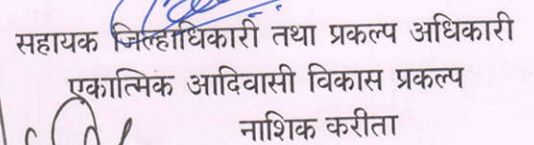 सहायक जिल्हाधिकारी तथा प्रकल्प अधिकारी
एकात्मिक आदिवासी विकास प्रकल्प
नाशिक करीता